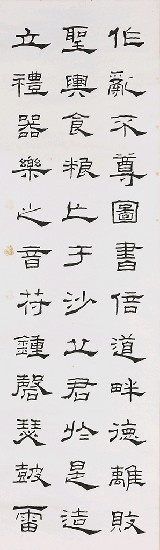 作亂不尊圖書倍道畔德離敗
聖輿食粮亡于沙丘君於是造
立禮器樂之音苻鍾磬瑟皷雷